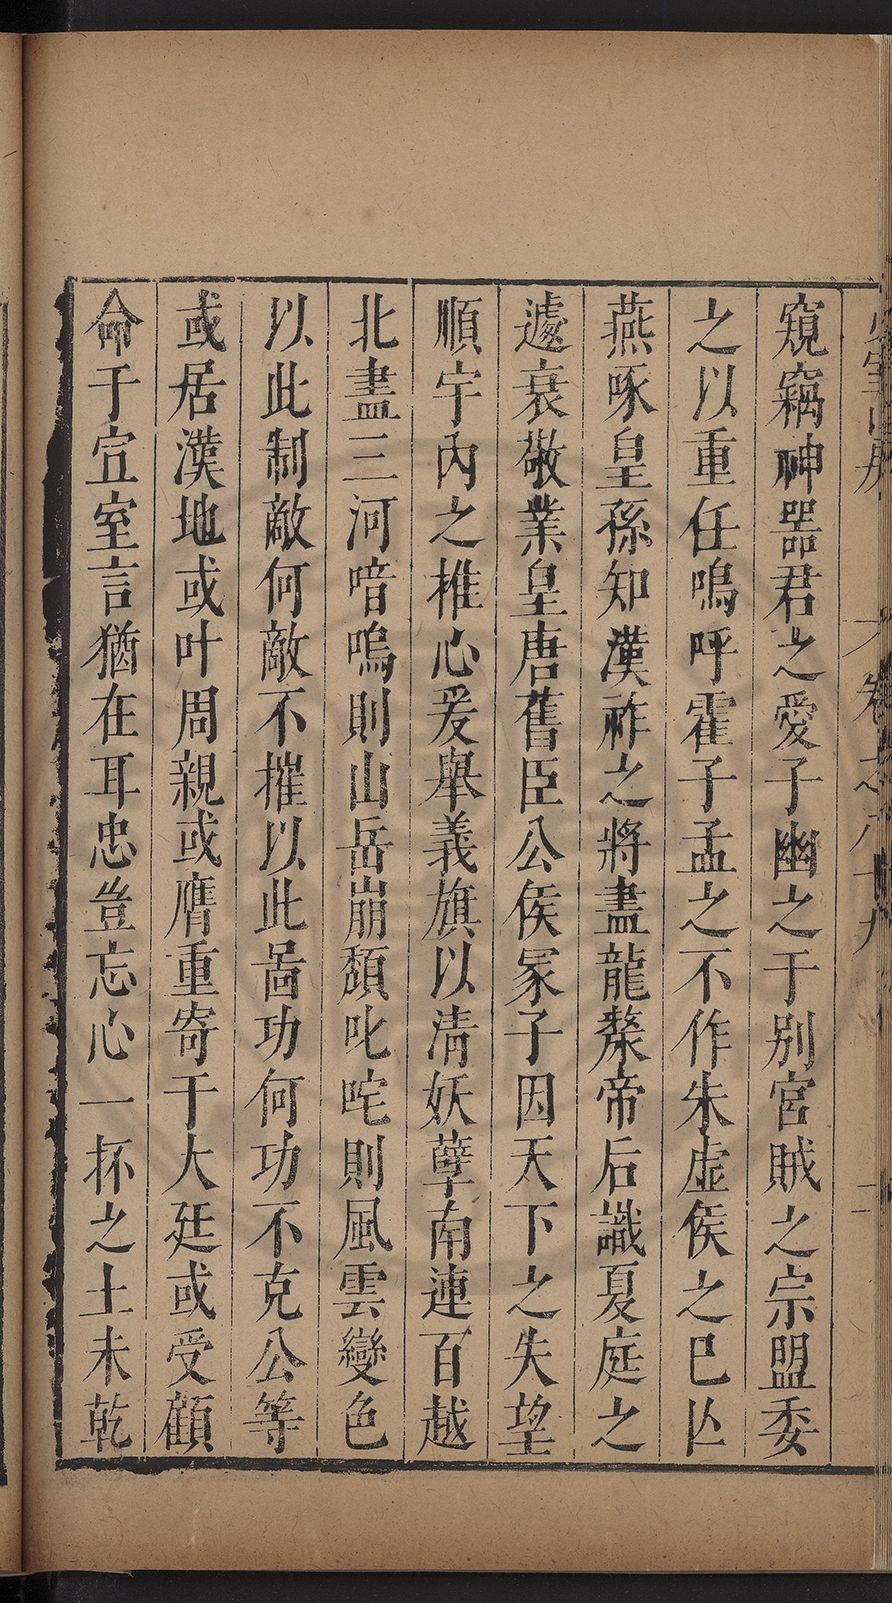 窺竊神器君之愛子幽之于別宮賊之宗盟委
之以重任嗚呼霍子孟之不作朱虛侯之已亾
燕啄皇孫知漢祚之將盡龍漦帝后識夏庭之
遽衰敬業皇唐舊臣公侯冢子因天下之失望
順宇內之推心爰舉義旗以清妖孽南連百越
北盡三河喑嗚則山岳崩頹叱咤則風雲變色
以此制敵何敵不摧以此啚功何功不克公等
或居漢地或叶周親或膺重寄于大廷或受顧
命于宣室言猶在耳忠豈忘心一抔之土未乾
卷之八十九
二